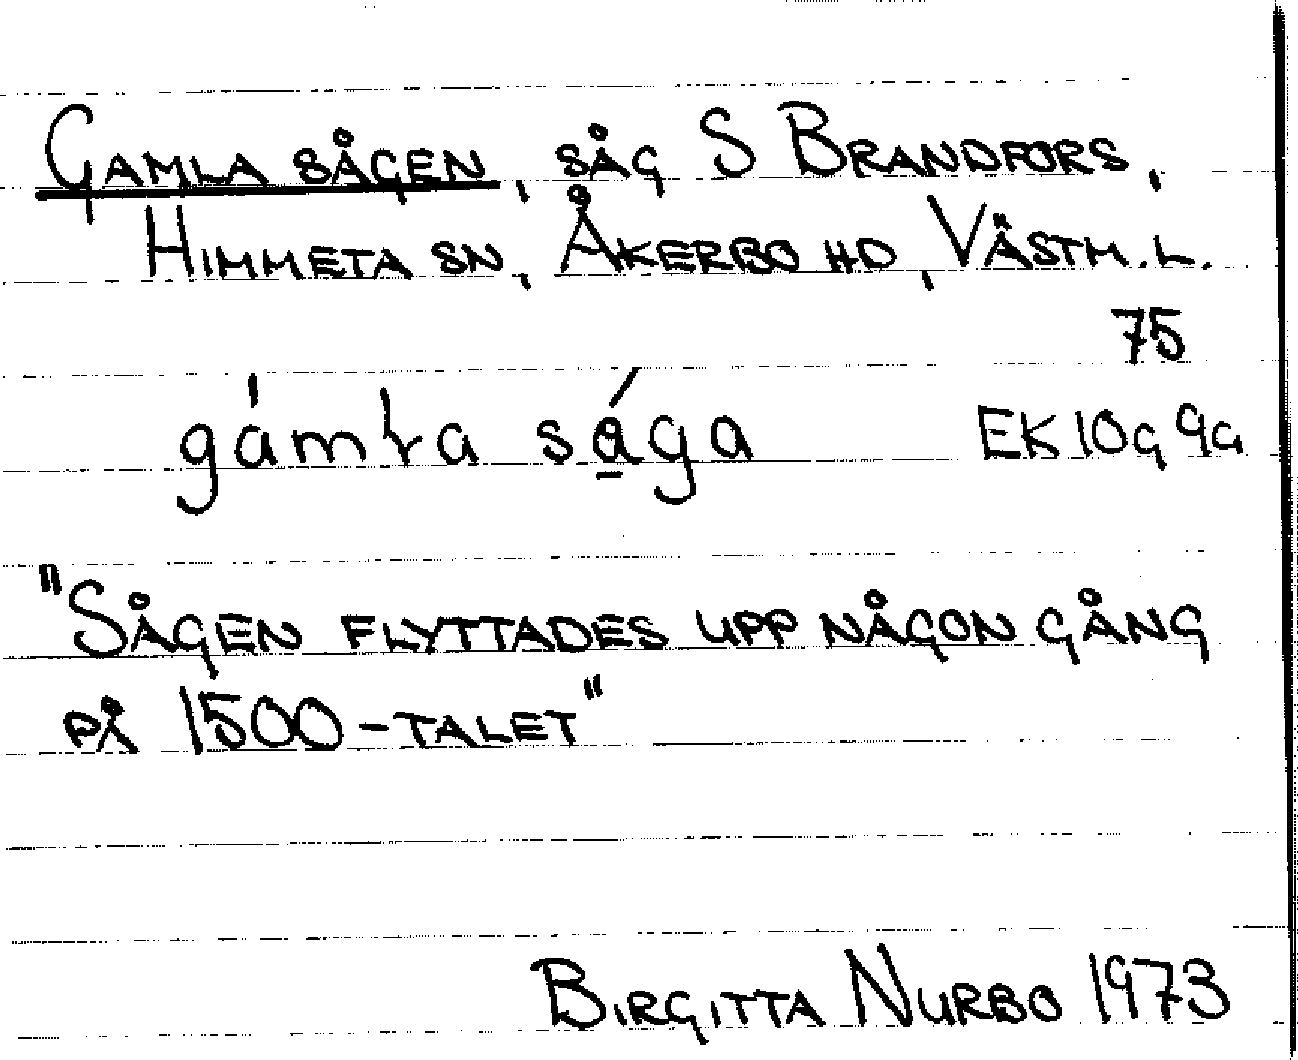 Gamla sågen, såg S Brandfors,
Himmeta sn, Åkerbo hd, Västm.l.
75
gámła sá̱ga EK 10g 9a
"Sågen flyttades upp någon gång
på 1500-talet"
Birgitta Nurbo 1973